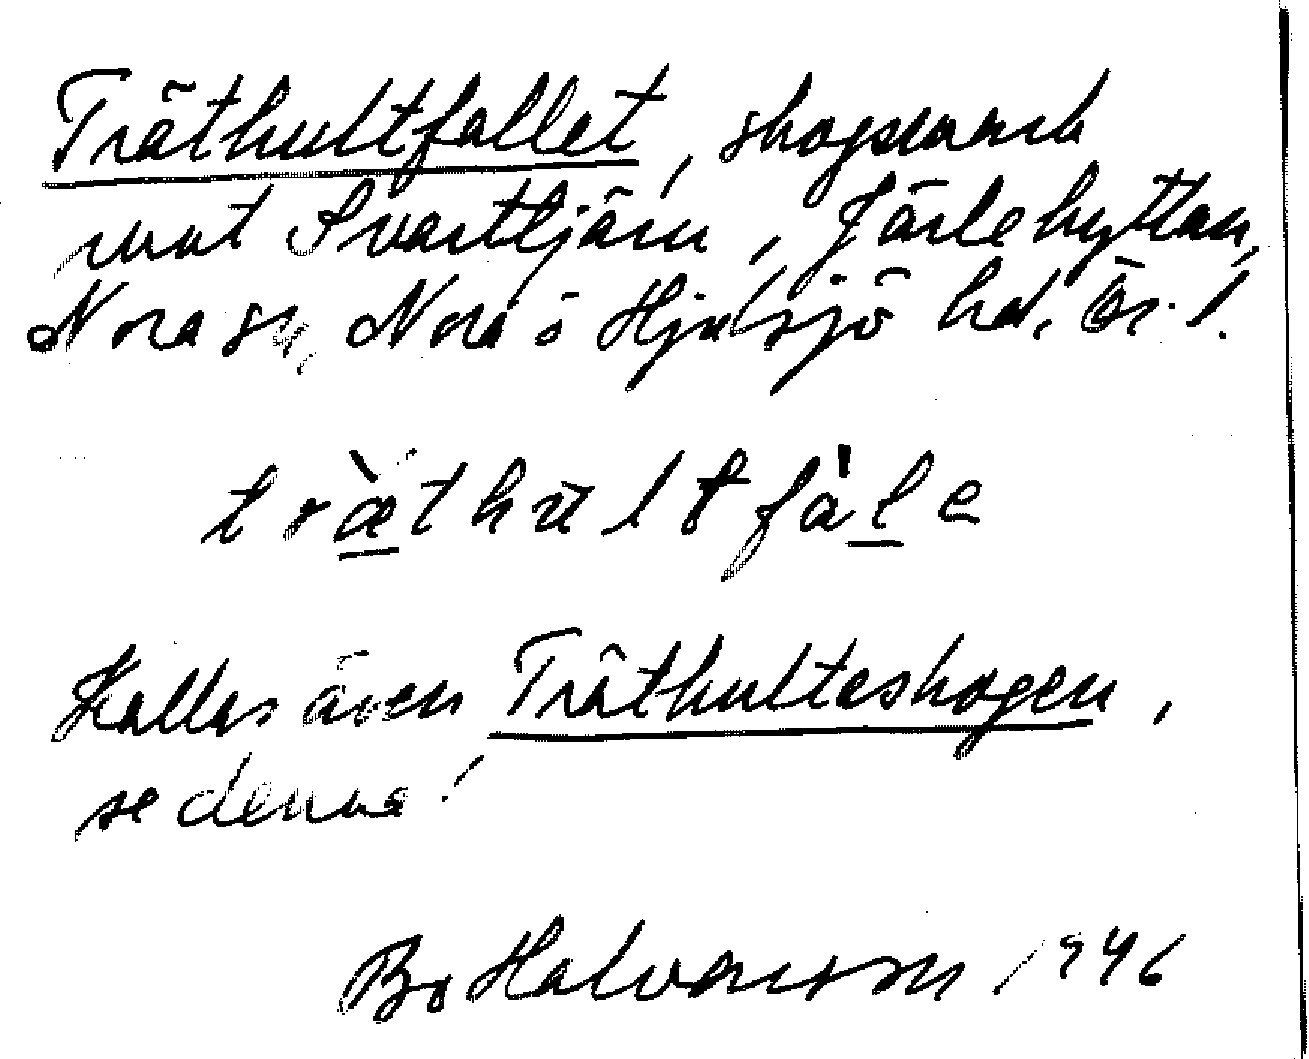 Träthultfallet, skogsmark
mot Svarttjärn, Järlehyttan,
Nora sn, Nora ö Hjulsjö hd. Ör. l.
tr<u>æ̀</u>thʉltfà<u>l</u>e
Kallas även Träthulteskogen,
se denna!
Bo Halvarsson 1946